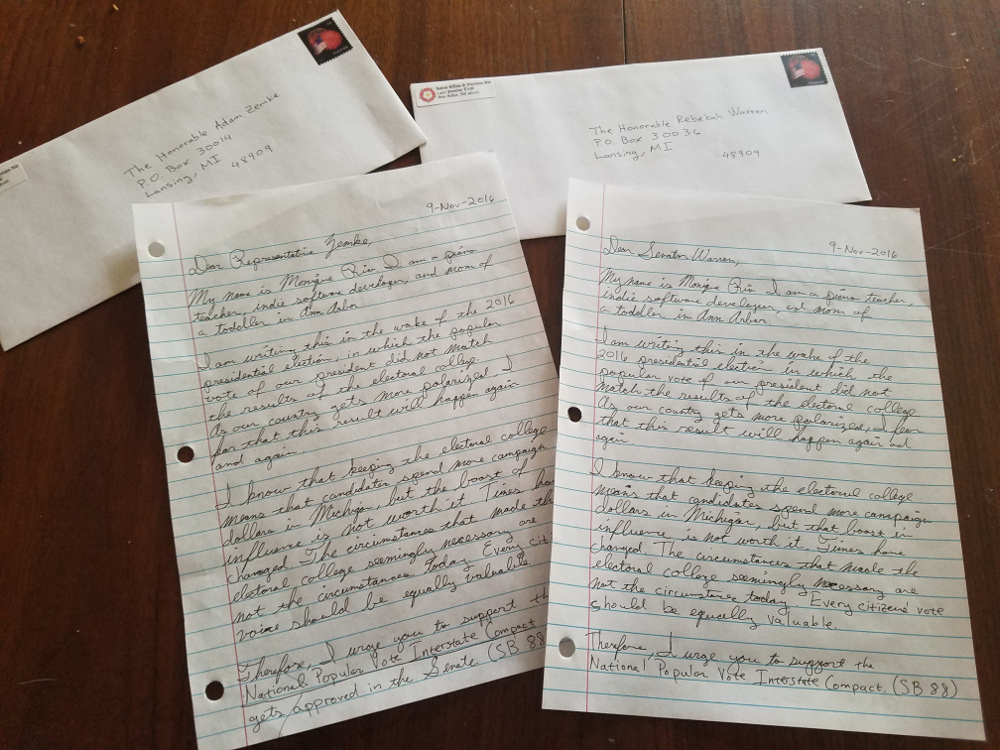 The Honorable Adam Zemke
P.O. Box 30014
Lansing, MI 48909
The Honorable Rebekah Warren
P.O. Box 30036
Lansing, MI 48909
9-Nov-2016
Dear Representative Zemke,
My name is Monique Rio. I am a piano
teacher, indie software developer, and mom of
a toddler in Ann Arbor.
I am writing this in the wake of the 2016
presidential election, in which the popular
vote of our president did not match
the results of the electoral college.
As our country gets more polarized, I
fear that this result will happen again
and again.
I know that keeping the electoral college
means that candidates spend more campaign
dollars in Michigan, but the boost of
influence is not worth it. Times hav
changed. The circumstances that made th
electoral college seemingly necessary are
not the circumstances today. Every cit
voice should be equally valuable.
Therefore, I urge you to support th
National Popular Vote Interstate Compact
gets approved in the Senate. (SB 88
9-Nov-2016
Dear Senator Warren,
My name is Monique Rio. I am a piano teacher,
indie software developer, and mom of
a toddler in Ann Arbor.
I am writing this in the wake of the
2016 presidential election in which the
popular vote of our president did not
match the results of the electoral college.
As our country gets more polarized, I fear
that this result will happen again and
again.
I know that keeping the electoral college
means that candidates spend more campaign
dollars in Michigan, but that boost in
influence, is not worth it. Times have
changed. The circumstances that made the
electoral college seemingly necessary are
not the circumstances today. Every citizens vote
should be equally valuable.
Therefore, I urge you to support the
National Popular Vote Interstate Compact. (SB 88)